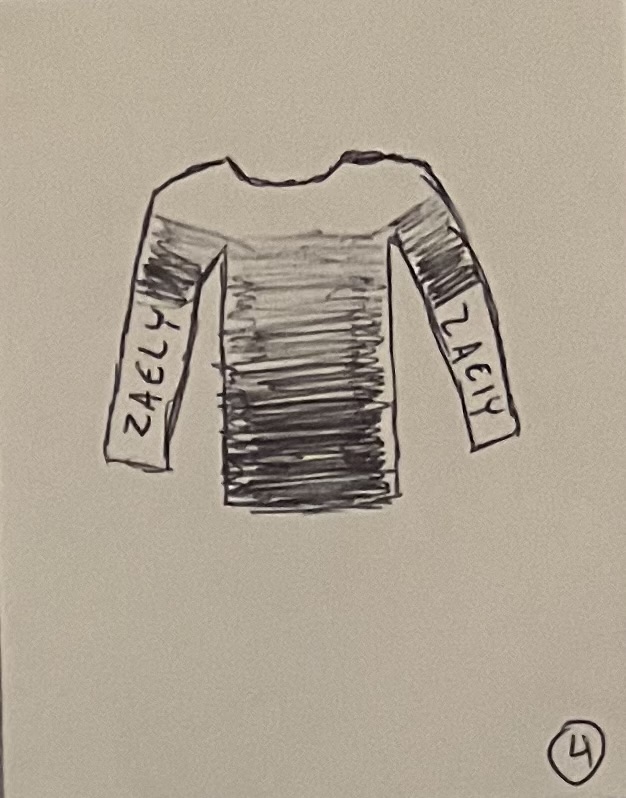 ZAELY
ZAEIY
4